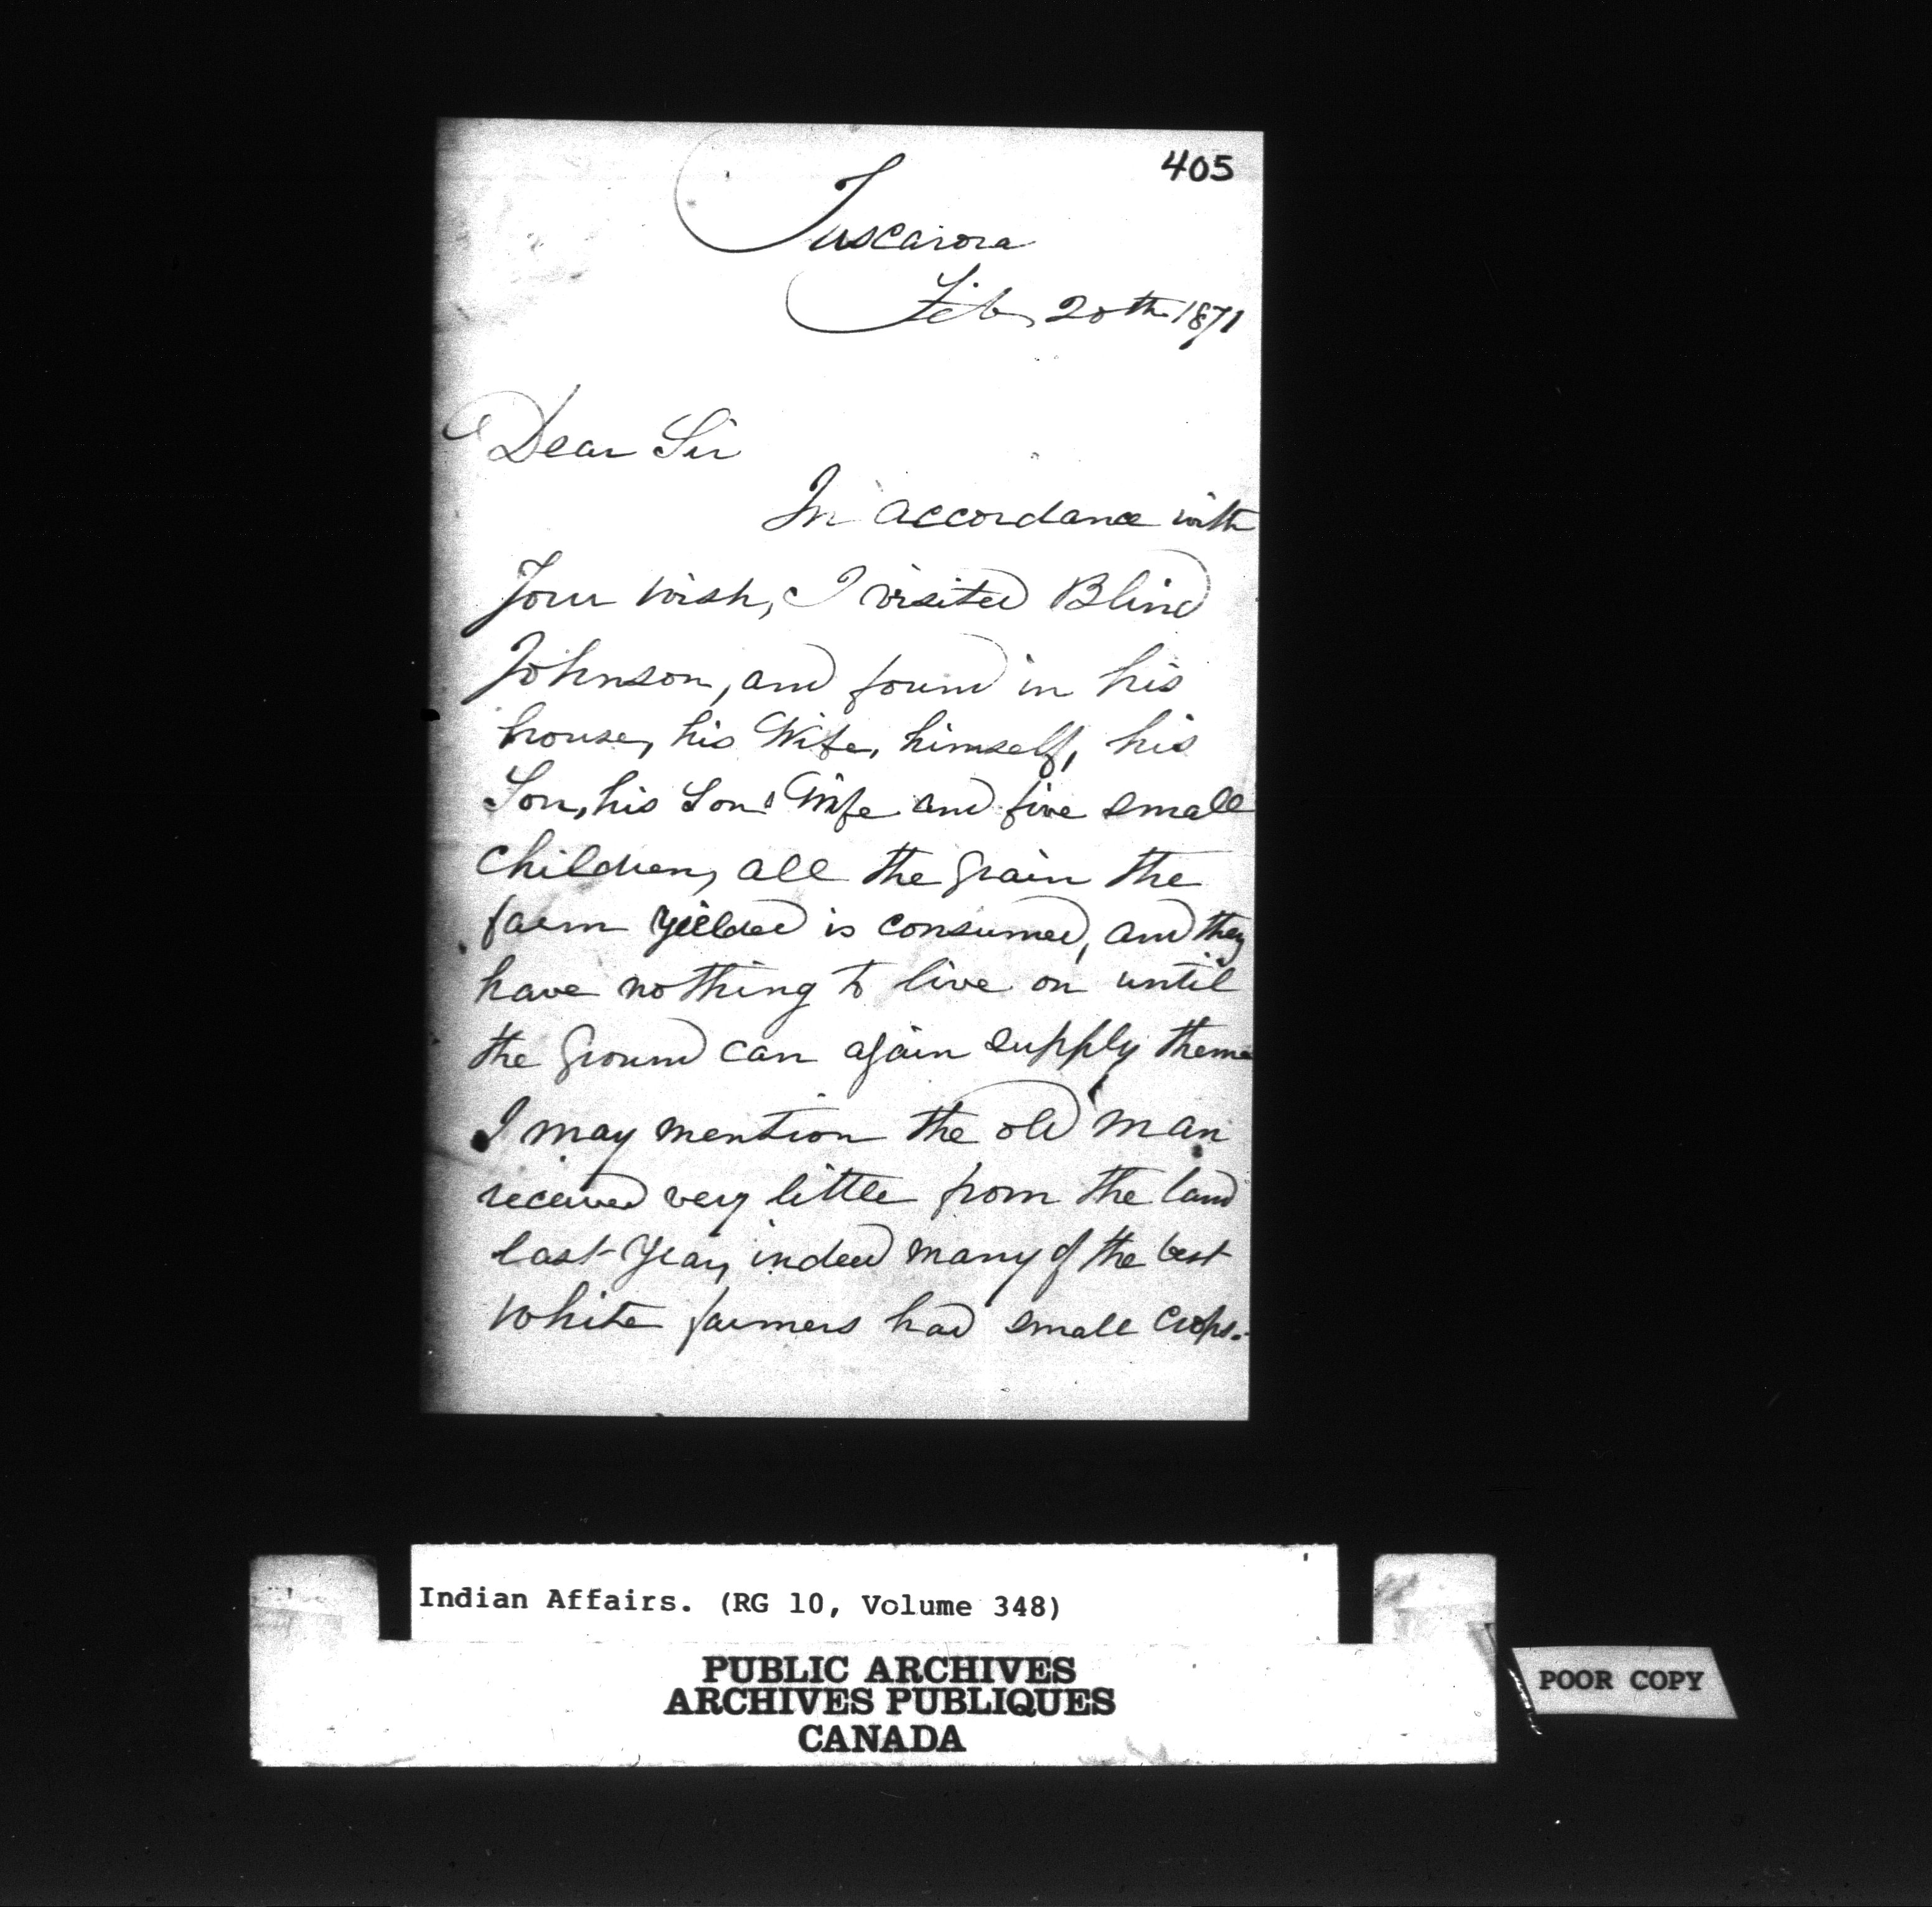 405
Tuscarora
Feb, 20th 1871
Dear Sir
In accordance with
Your wish, I visited Blind
Johnson, and found in his
house, his Wife, himself, his
Son, his Sons Wife and five small
Children, all the grain the
farm yielded is consumed, and they
have nothing to live on until
the ground can again supply them
I may mention the old man
received very little from the land
last Year, indeed many of the best
White farmers had small Crops.
Indian Affairs. (RG 10, Volume 348)
PUBLIC ARCHIVES
ARCHIVES PUBLIQUES
CANADA
POOR COPY